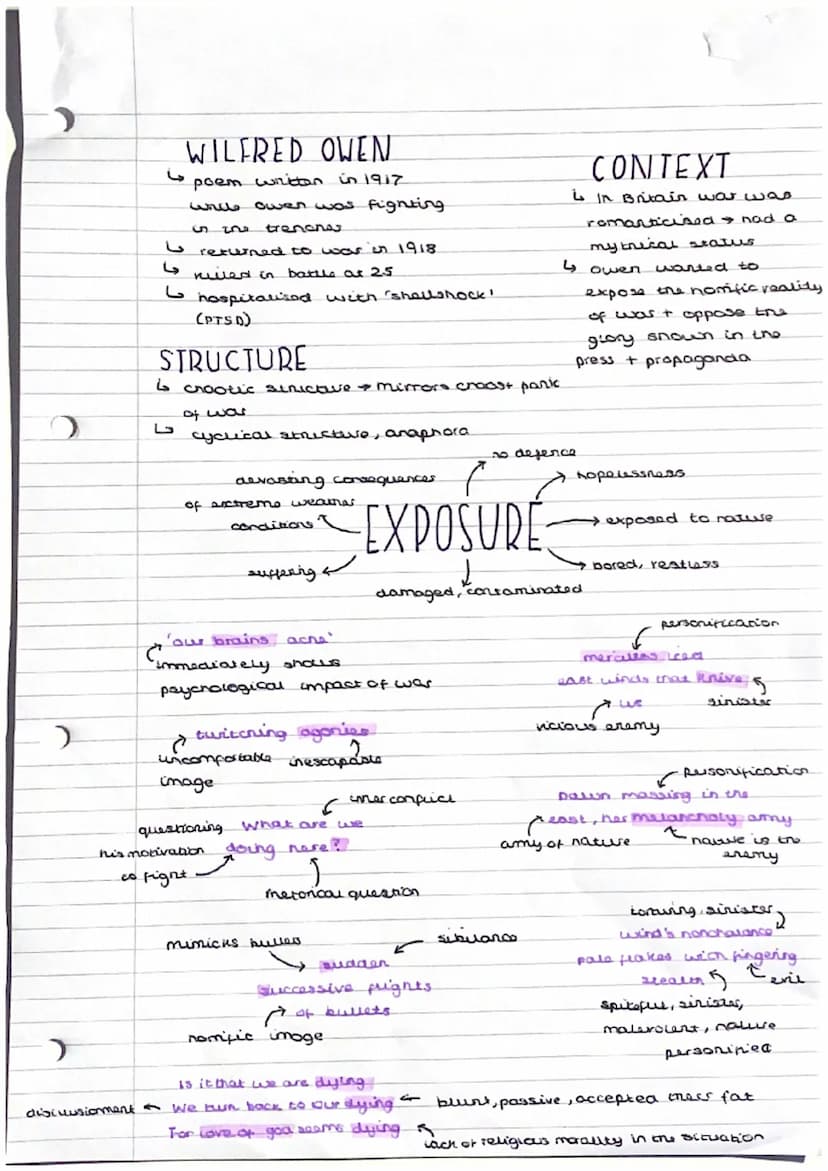 WILFRED OWEN
↳ poem written in 1917
while owen was fighting
in the trenches
↳ returned to war in 1918
↳ killed in battle at 25
↳ hospitalised with 'shellshock'
(PTSD)
CONTEXT
↳ In Britain war was
romanticised → had a
mythical status
↳ owen wanted to
expose the horrific reality
of war + oppose the
glory shown in the
press + propaganda
STRUCTURE
↳ chaotic structure → mirrors chaos + panic
of war
↳ cyclical structure, anaphora
EXPOSURE
no defence
hopelessness
exposed to nature
bored, restless
damaged, contaminated
suffering
devasting consequences
of extreme weather
conditions
'our brains ache'
immediately shows
psychological impact of war
personification
merciless iced
east winds that knive
us
sinister
vicious enemy
twitching agonies
uncomfortable inescapable
image
personification
Dawn massing in the
east, her melancholy army
army of nature
nature is the
enemy
inner conflict
questioning What are we
his motivation doing here?
to fight
rhetorical question
torturing, sinister
wind's nonchalance
pale flakes with fingering
stealth
evil
spiteful, sinister,
malevolent, nature
personified
mimicks bullets
sibilance
sudden
successive flights
of bullets
horrific image
Is it that we are dying
disillusionment ← We turn back to our dying ← blunt, passive, accepted their fat
For love of god seems dying
lack of religious morality in the situation